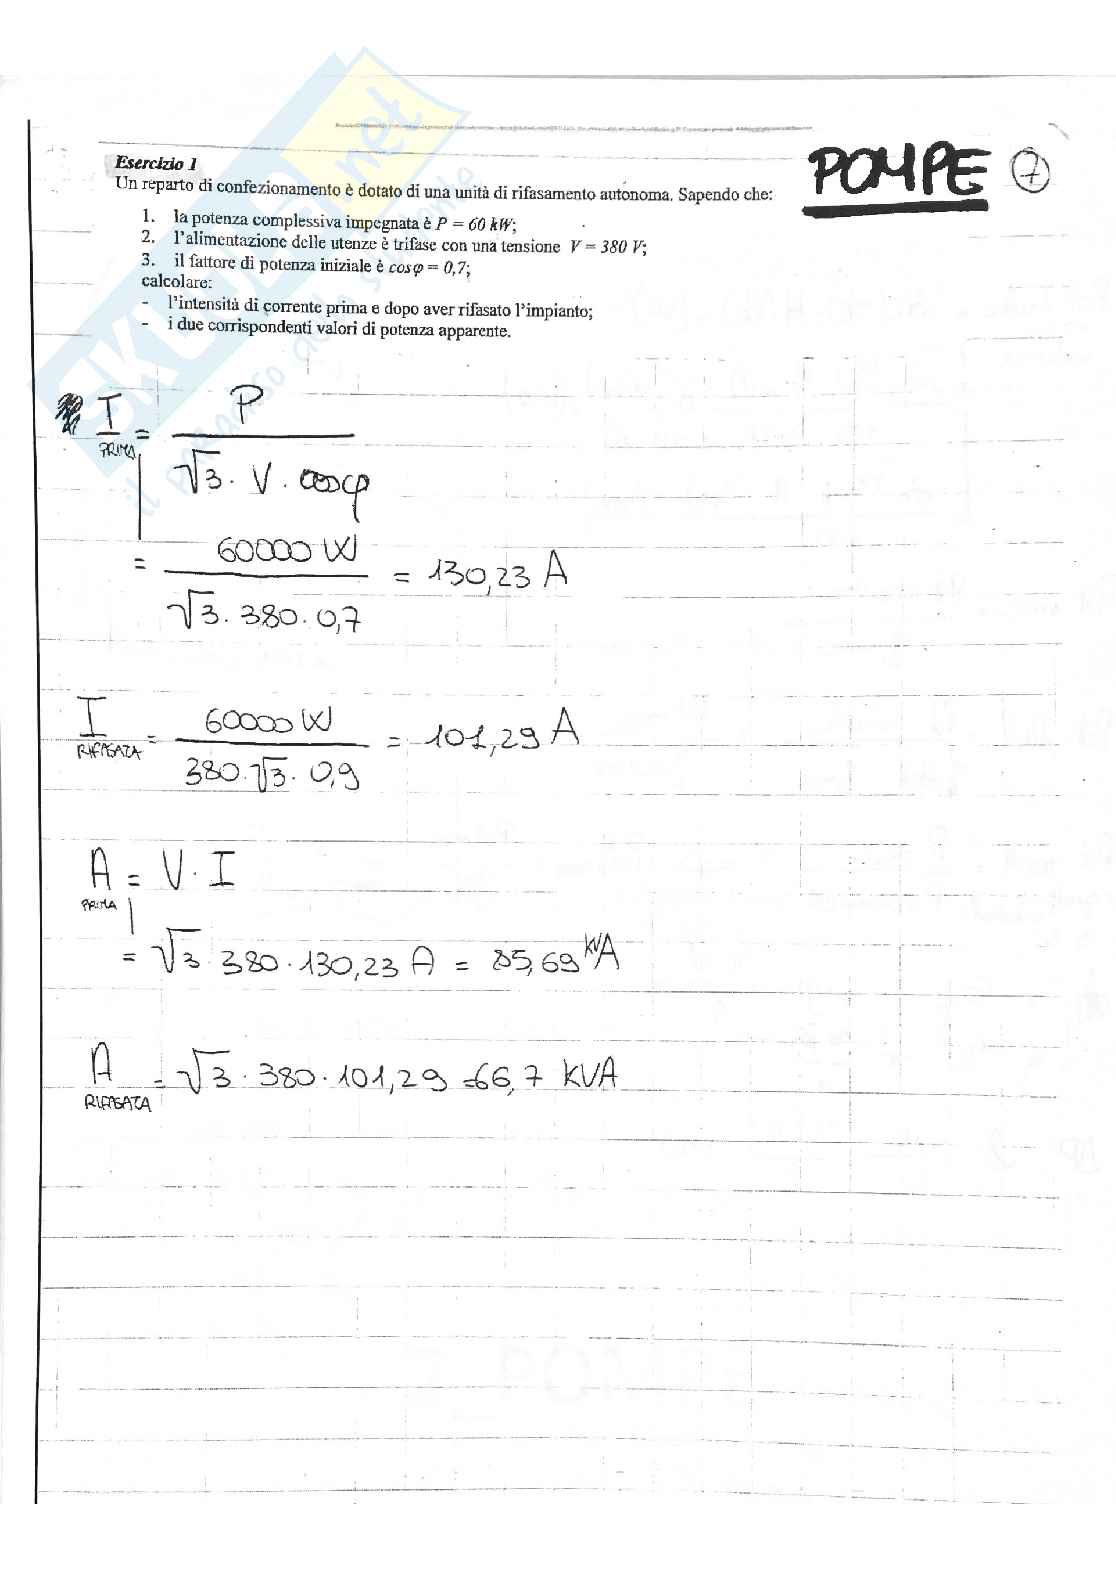 POMPE 7
Esercizio 1
Un reparto di confezionamento è dotato di una unità di rifasamento autónoma. Sapendo che:
1. la potenza complessiva impegnata è P = 60 kW;
2. l'alimentazione delle utenze è trifase con una tensione V = 380 V;
3. il fattore di potenza iniziale è cosφ = 0,7;
calcolare:
- l'intensità di corrente prima e dopo aver rifasato l'impianto;
- i due corrispondenti valori di potenza apparente.
I PRIMA = P / √3 · V · cosφ
= 60000 W / √3 · 380 · 0,7 = 130,23 A
I RIFASATA = 60000 W / 380 · √3 · 0,9 = 101,29 A
A PRIMA = V · I
= √3 · 380 · 130,23 A = 85,69 kVA
A RIFASATA = √3 · 380 · 101,29 = 66,7 KVA
SKUOLA.net
il paradiso dello studente